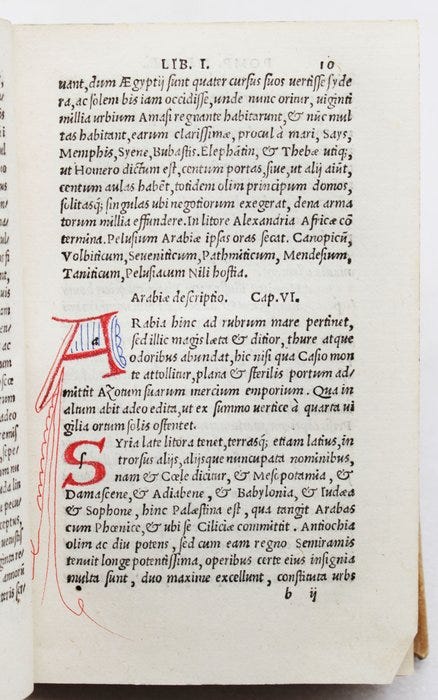 LIB. I. 10
uant, dum Ægyptij sunt quater cursus suos uertisse syde
ra, ac solem bis iam occidisse, unde nunc oritur, uiginti
millia urbium Amasi regnante habitarunt, & nũc mul
tas habitant, earum clarissimæ, procul à mari, Says,
Memphis, Syene, Bubastis. Elephãtin, & Thebæ utiq;,
ut Homero dictum est, centum portas, siue, ut alij aiũt,
centum aulas habẽt, totidem olim principum domos,
solitasq; singulas ubi negotiorum exegerat, dena arma
torum millia effundere. In litore Alexandria Africæ cõ
termina. Pelusium Arabiæ ipsas oras secat. Canopicũ,
Volbiticum, Seueniticum, Pathmiticum, Mendesium,
Taniticum, Pelusiacum Nili hostia.
Arabiæ descriptio. Cap. VI.
ARabia hinc ad rubrum mare pertinet,
sed illic magis læta & ditior, thure atque
odoribus abundat, hic nisi qua Casio mon
te attollitur, plana & sterilis portum ad/
mittit Azotum suarum mercium emporium. Qua in
altum abit adeo edita, ut ex summo uertice à quarta ui
gilia ortum solis ostentet.
SYria late litora tenet, terrasq; etiam latius, in
trorsus alijs, alijsque nuncupata nominibus,
nam & Cœle dicitur, & Mesopotamia, &
Damascene, & Adiabene, & Babylonia, & Iudæa
& Sophone, hinc Palæstina est, qua tangit Arabas
cum Phœnice, & ubi se Ciliciæ committit. Antiochia
olim ac diu potens, sed cum eam regno Semiramis
tenuit longe potentissima, operibus certe eius insignia
multa sunt, duo maxime excellunt, constituta urbs
b ij